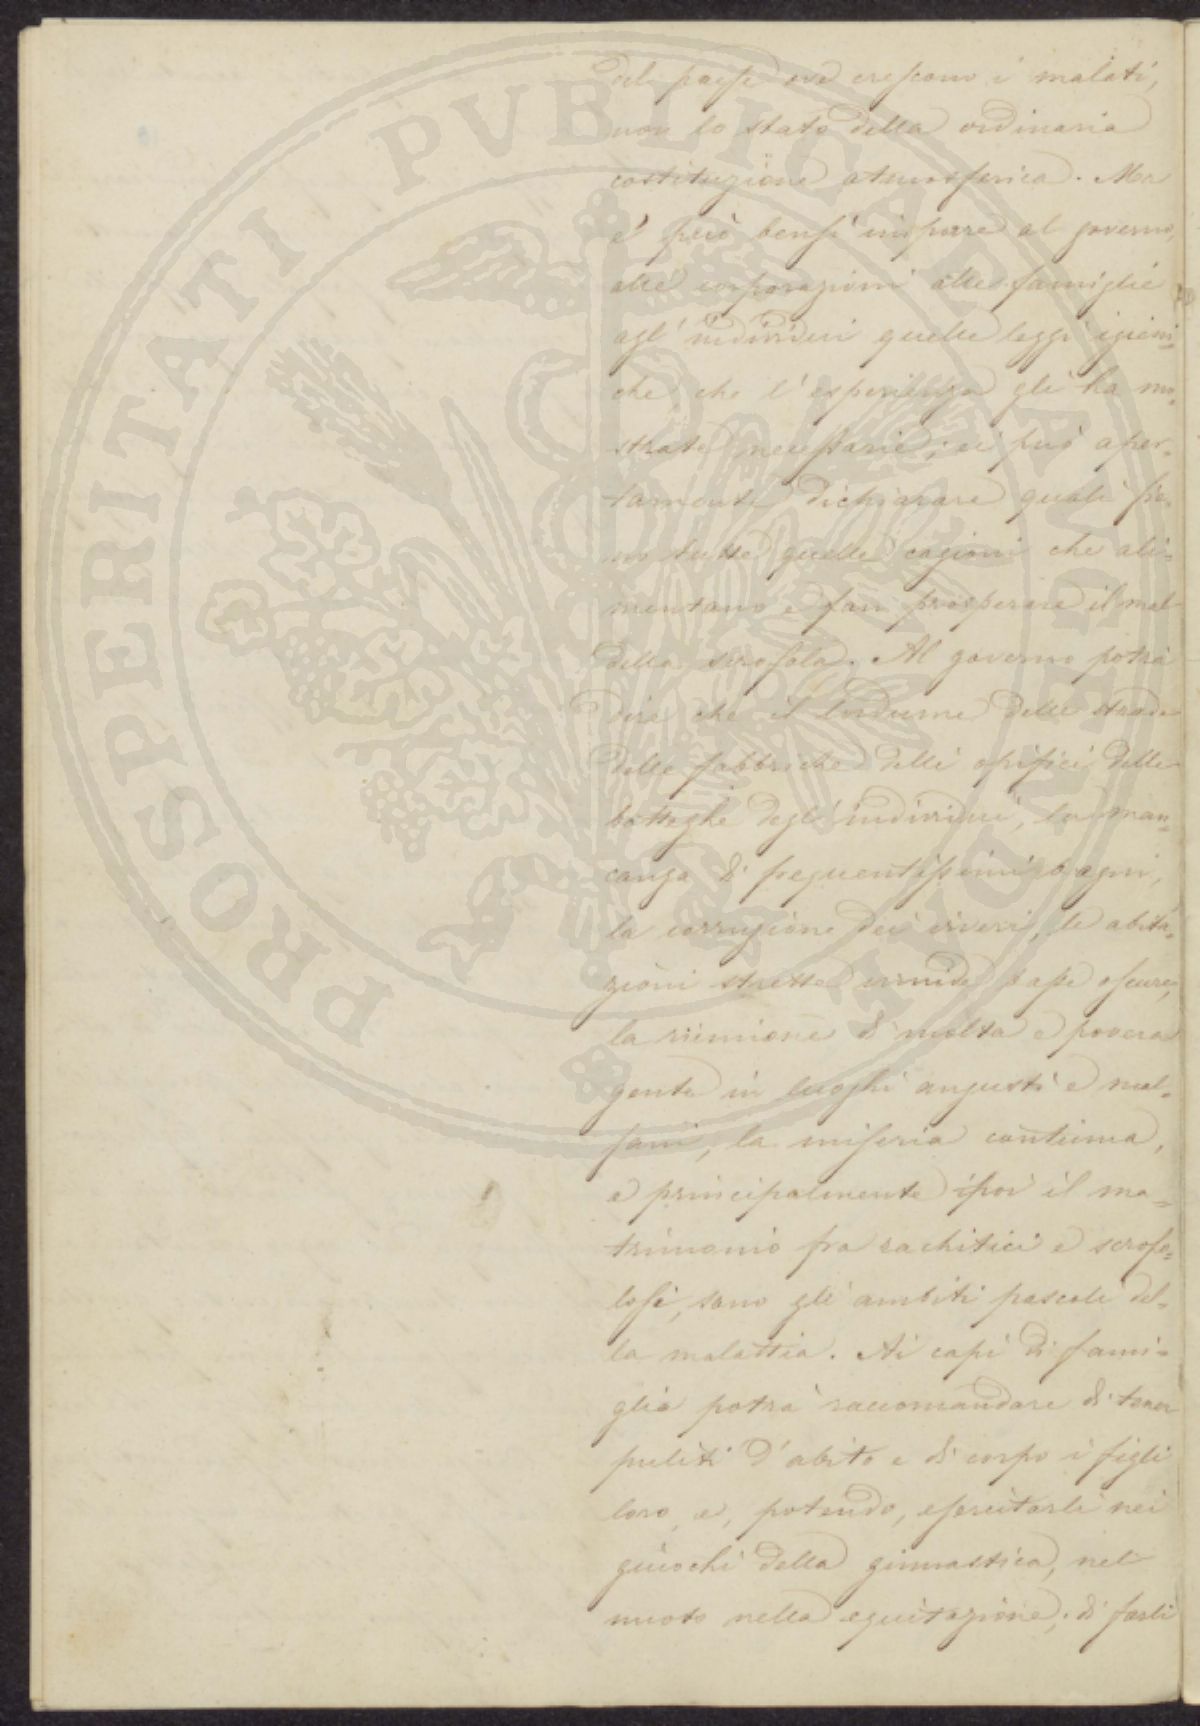 del paese ove crescono i malati,
non lo stato della ordinaria
costituzione atmosferica. Ma
e' può bensì imporre al governo,
alle corporazioni alle famiglie
agl' individui quelle leggi igieni=
che che l'esperienza gli ha mo=
strate necessarie; ei può aper=
tamente dichiarare quali sie=
no tutte quelle cagioni che ali=
mentano e fan prosperare il mal
della scrofola. Al governo potrà
dire che il luridume delle strade
delle fabbriche delli opifici delle
botteghe degl' individui, la man=
canza di frequentissimi bagni,
la corruzione dei viveri, le abita=
zioni strette umide basse oscure,
la riunione di molta e povera
gente in luoghi angusti e mal=
sani, la miseria continua,
e principalmente ipoi il ma=
trimonio fra rachitici e scrofo=
losi, sono gli ambiti pascoli del=
la malattia. Ai capi di fami=
glia potrà raccomandare di tener
puliti d'abito e di corpo i figli
loro, e, potendo, esercitarli nei
giuochi della ginnastica, nel
nuoto nella equitazione; di farli
PROSPERITATI PVBLICAE AVGENDAE